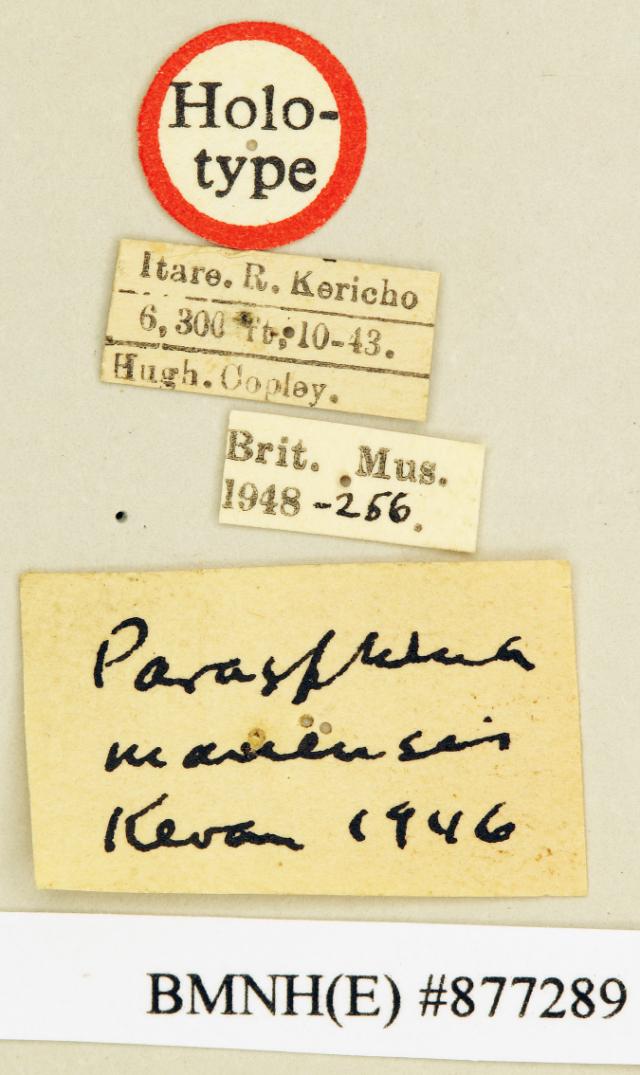 Holo-
type
Itare. R. Kericho
6,300 ft, 10-43.
Hugh. Copley.
Brit. Mus.
1948-256.
Parasphena
mauensis
Kevan 1946
BMNH(E) #877289